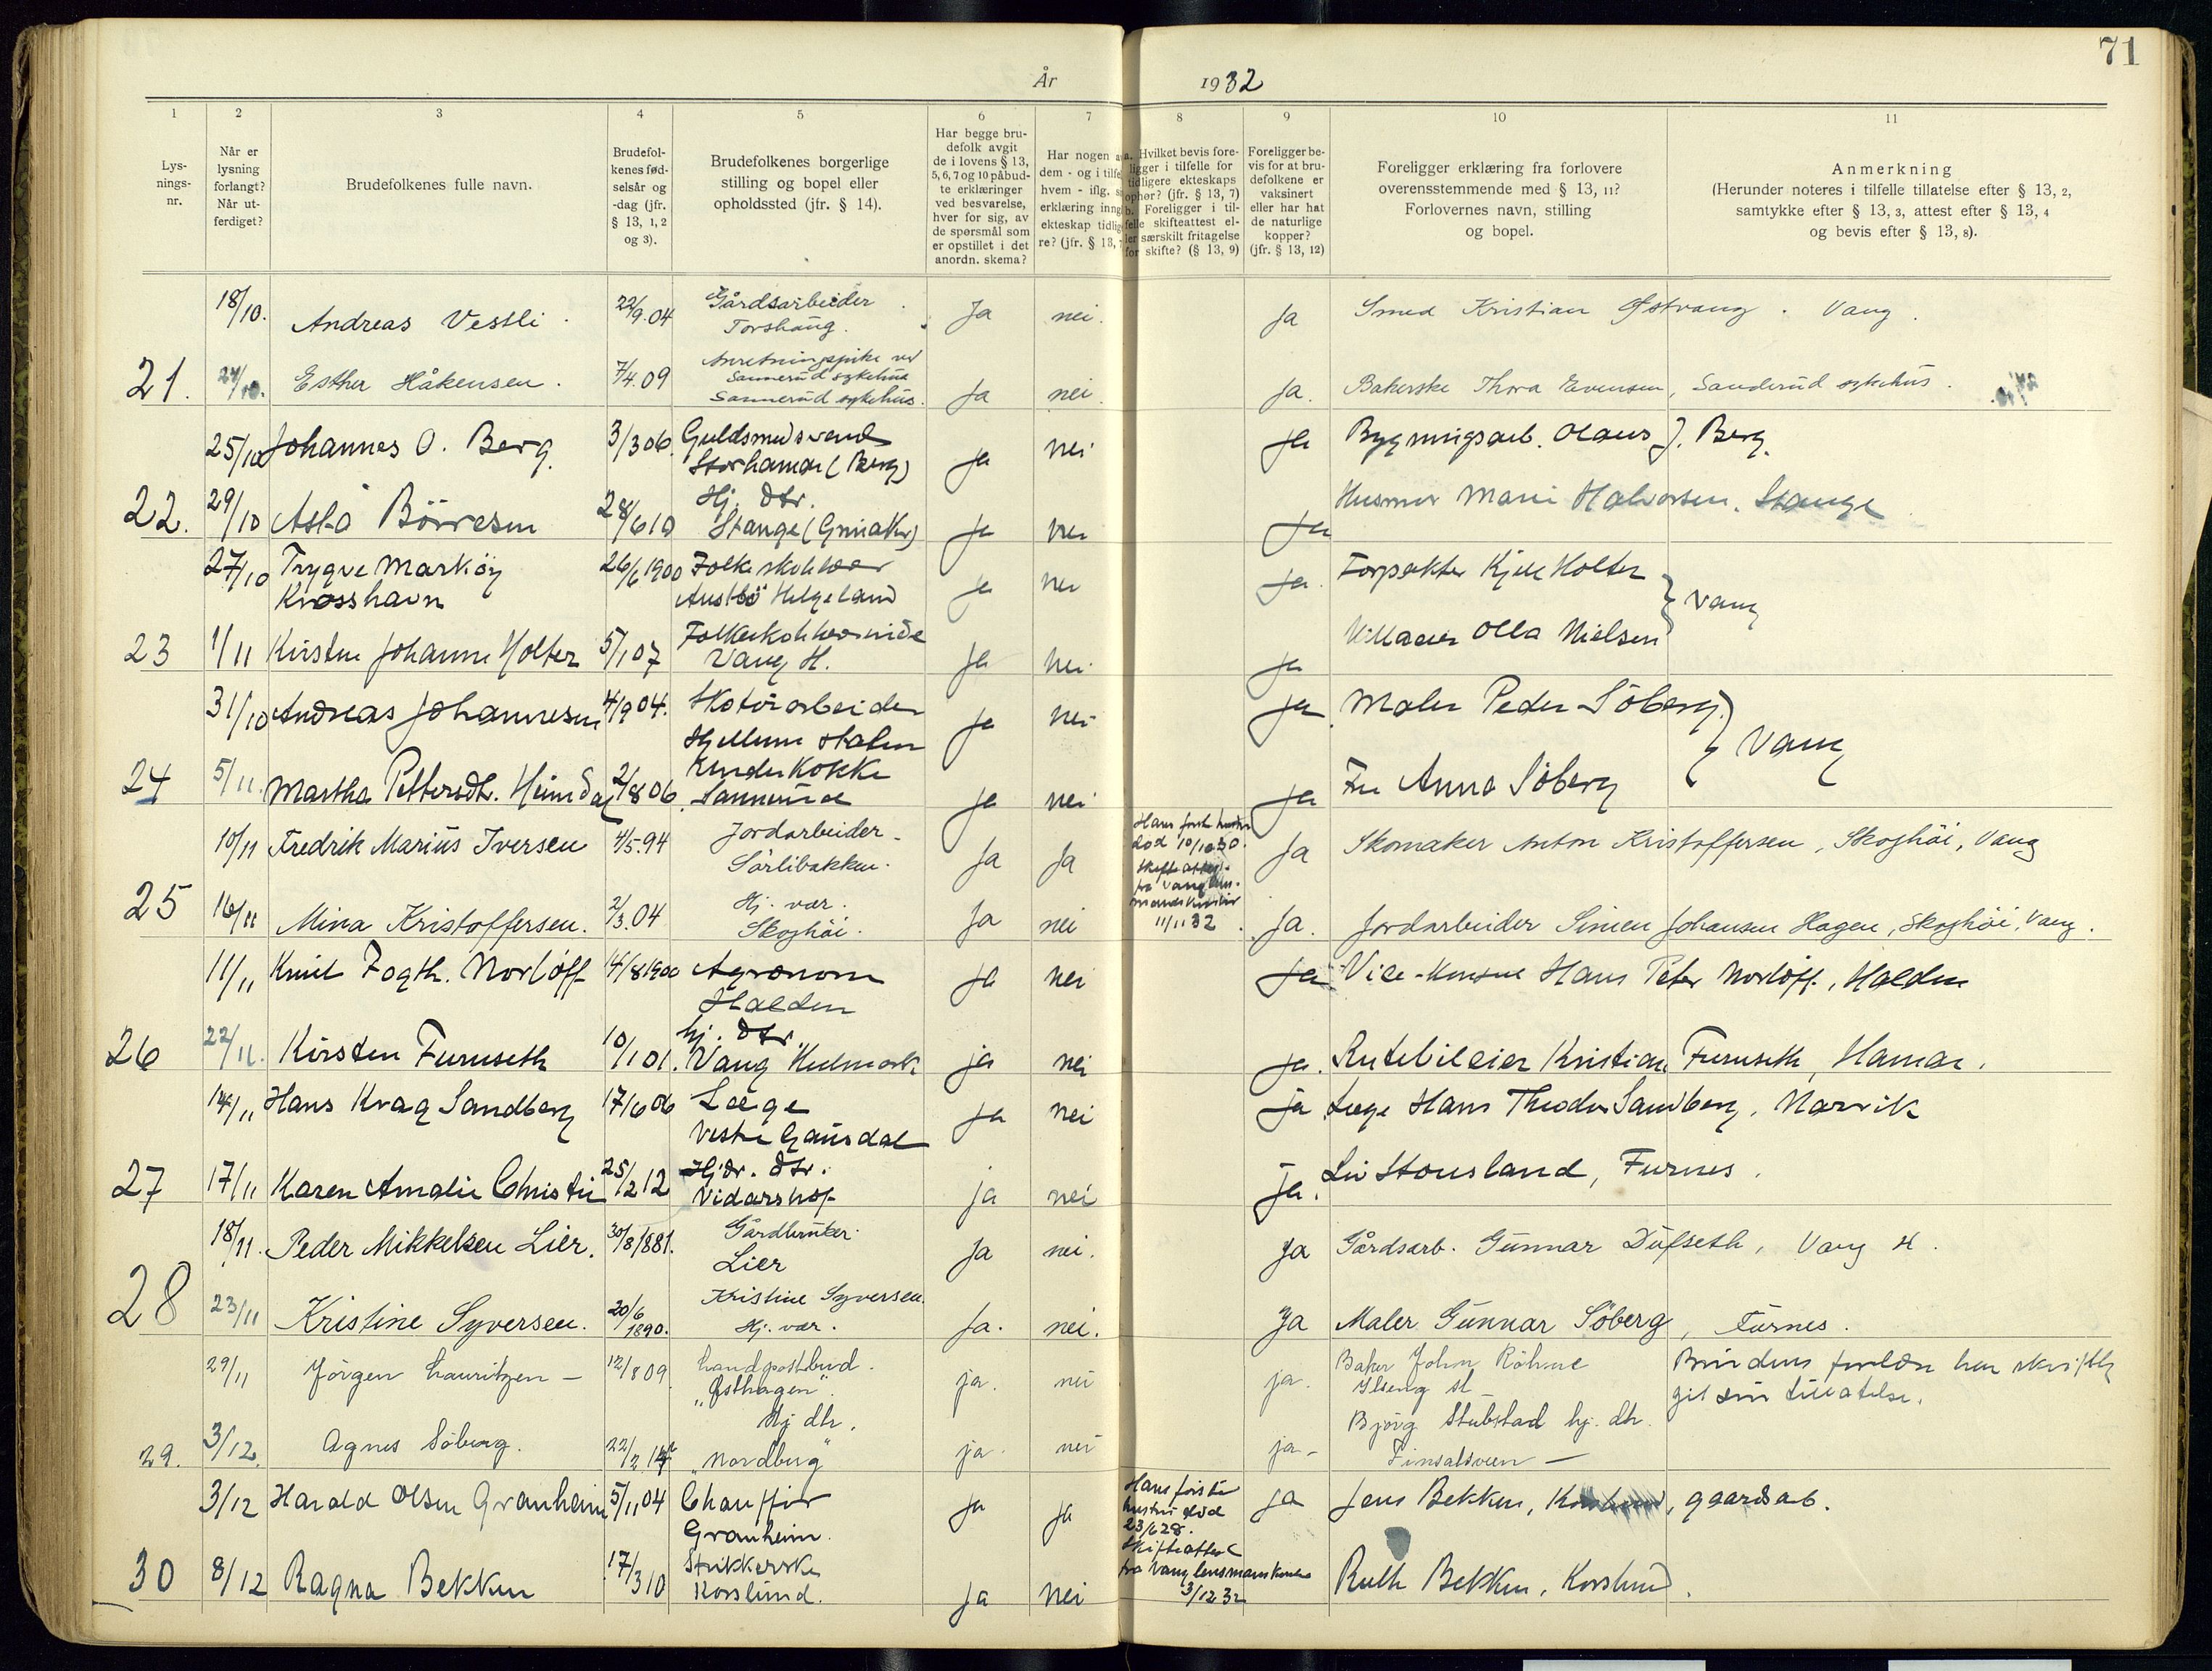 71
År 1932
1 2 3 4 5 6 7 8 9 10 11
Lys-
nings-
nr.
Når er
lysning
forlangt?
Når ut-
ferdiget?
Brudefolkenes fulle navn.
Brudefol-
kenes fød-
selsår og
-dag (jfr.
§ 13, 1, 2
og 3).
Brudefolkenes borgerlige
stilling og bopel eller
opholdssted (jfr. § 14).
Har begge bru-
defolk avgit
de i lovens § 13,
5, 6, 7 og 10 påbud-
te erklæringer
ved besvarelse,
hver for sig, av
de spørsmål som
er opstillet i det
anordn. skema?
Har nogen a
dem - og i tilfe
hvem - iflg. s
erklæring inng
ekteskap tidlig
re? (jfr. § 13, 7
a. Hvilket bevis fore-
ligger i tilfelle for
tidligere ekteskaps
ophør? (jfr. § 13, 7)
b. Foreligger i til-
felle skifteattest el-
ler særskilt fritagelse
for skifte? (§ 13, 9)
Foreligger be-
vis for at bru-
defolkene er
vaksinert
eller har hat
de naturlige
kopper?
(jfr. § 13, 12)
Foreligger erklæring fra forlovere
overensstemmende med § 13, 11?
Forlovernes navn, stilling
og bopel.
Anmerkning
(Herunder noteres i tilfelle tillatelse efter § 13, 2,
samtykke efter § 13, 3, attest efter § 13, 4
og bevis efter § 13, 8).
18/10. Andreas Vestli. 22/9.04 Gårdsarbeider Torshaug. Ja nei. Ja Smed Kristian Østvang. Vang.
21. 24/10. Esther Håkensen. 7/4.09 Anretningspike ved
Sannerud sykehus
Sannerud sykehus. Ja nei. Ja. Bakerske Thora Evensen, Sanderud sykehus.
25/10 Johannes O. Berg. 3/3 06. Guldsmedsvend
Storhamar (Berg) Ja nei Ja Bygningsarb. Olaus J. Berg.
22. 29/10 Asta Börresen 28/6 10 Hj. dtr.
Stange ( ) Ja nei Ja Husmor Marie Halvorsen. Stange
27/10 Trygve Marköy
Krosshavn 26/6 1900 Folkeskolelærer
Austbö Helgeland Ja nei Ja. Forpakter Kjell Holter
} Vang
23 1/11 Kirsten Johanne Holter 5/1 07 Folkeskolelærerinde
Vang H. Ja nei Ja Villaeier Olla Nielsen
31/10 Andreas Johannesen 4/9 04. Skotöiarbeider
Hjellum station Ja nei Ja. Maler Peder Söberg
} Vang
24 5/11. Martha Pettersdt. Heimdal 2/8 06. Underkokke
Sannerud Ja nei Ja Fru Anna Söberg
10/11 Fredrik Marius Iversen 4/5.94 Jordarbeider
Sörlibakken. Ja Ja Hans förste hustru
död 10/10 30.
Skifteattest
fra Vang lens-
mandskontor
11/11 32 Ja Skomaker Anton Kristoffersen, Skoghöi, Vang
25 16/11 Mina Kristoffersen. 2/3.04 Hj. vær.
Skoghöi. Ja nei Ja. Jordarbeider Simen Johansen Hagen, Skoghöi, Vang.
11/11 Knut Fogth. Norlöff 14/8 1900 Agronom
Halden Ja nei Ja Vice-konsul Hans Peter Norlöff, Halden
26 22/11. Kirsten Furuseth 10/1 01. hj. dtr.
Vang Hedmark ja nei Ja. Rutebileier Kristian Furuseth, Hamar.
14/11 Hans Krag Sandberg 17/6 06 Læge
Vestre Gausdal Ja nei Ja Læge Hans Theodor Sandberg, Narvik
27 17/11 Karen Amalie Christie 25/2 12 Hj. dtr.
Vidarshof ja nei Ja. Liv Stousland, Furnes.
18/11. Peder Mikkelsen Lier. 30/8 1881. Gårdbruker
Lier Ja nei. Ja Gårdsarb. Gunnar Dufseth, Vang H.
28 23/11 Kristine Syversen. 20/6 1890. Kristine Syversen.
Hj. vær. Ja. nei. Ja Maler Gunnar Söberg, Furnes.
29/11 Jörgen Lauritzen — 12/8 09 Landpostbud.
"Østhagen". ja. nei ja. Baker John Röhne
Ilseng st. Brudens foreldre har skriftlig
git sin tillatelse.
29. 3/12. Agnes Söberg. 22/2 14 Hj dtr.
"Nordberg" ja nei ja- Björg Stubstad hj. dtr.
Finsalsveen —
3/12 Harald Olsen Granheim 5/11 04 Chaufför
Granheim. Ja Ja Hans förste
hustru död
23/6 28.
Skifteattest
fra Vang lensmannskontor
3/12 32 Ja Jens Bekken, gaardsarb.
30 8/12 Ragna Bekken 17/3 10 Strikkerske
Korslund. Ja Nei Ruth Bekken, Korslund.